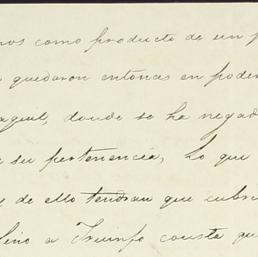 nos como producto de un p
quedaron entonces en poder
aquil, donde se ha negad
su pertenencia, lo que
y de ello tendran que cubri
lino a Triunfo consta qu